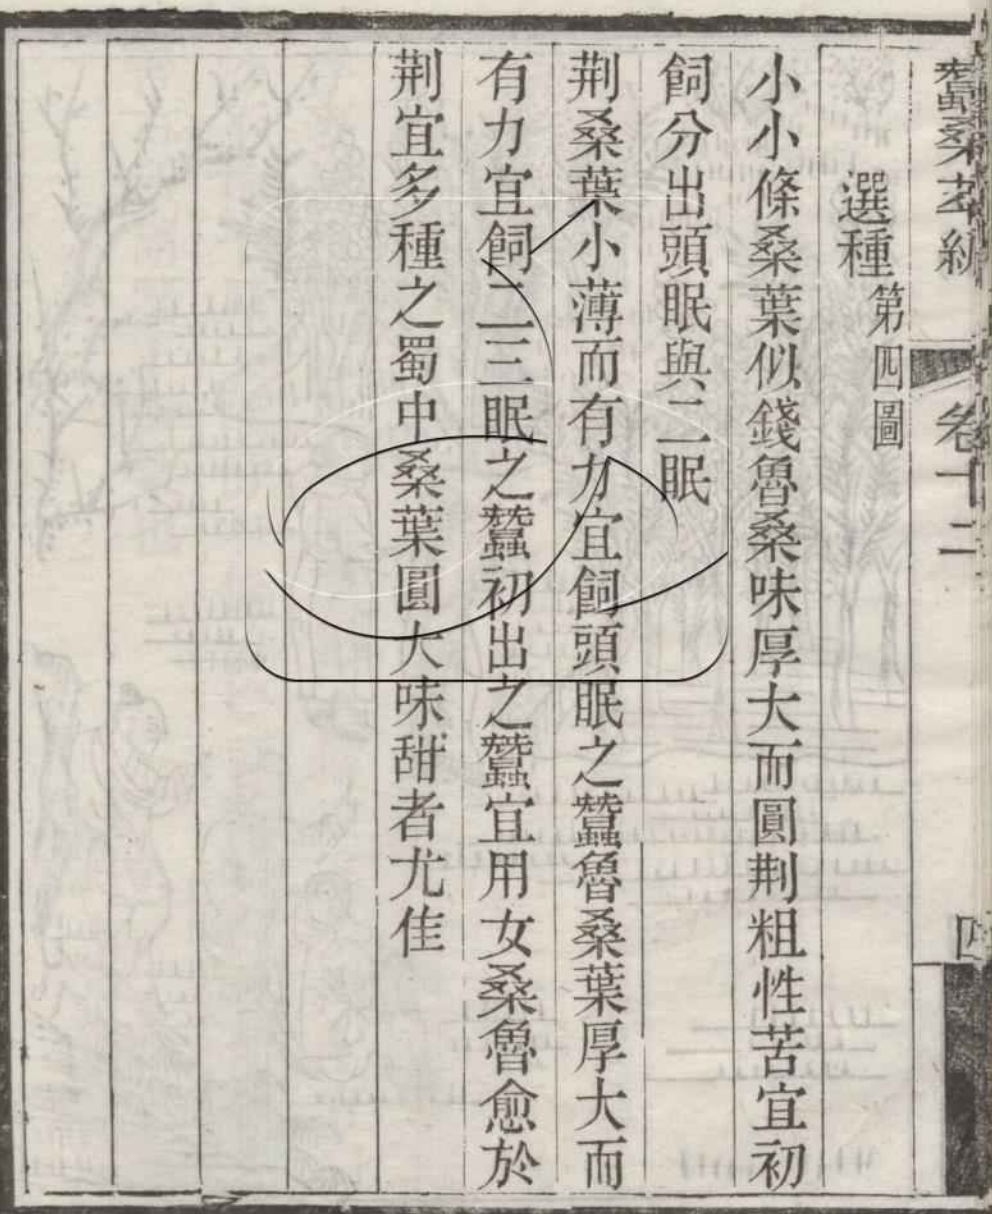 蠶桑萃編 卷十二
選種第四圖
小小條桑葉似錢魯桑味厚大而圓荆粗性苦宜初
飼分出頭眠與二眠
荆桑葉小薄而有力宜飼頭眠之蠶魯桑葉厚大而
有力宜飼二三眠之蠶初出之蠶宜用女桑魯愈於
荆宜多種之蜀中桑葉圓大味甜者尤佳